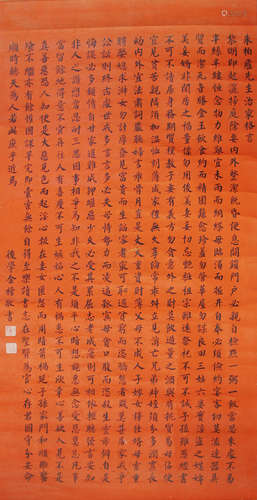 朱柏廬先生治家格言
黎明即起灑掃庭除要內外整潔既昏便息關鎖門戶必親自檢點一粥一飯當思來處不易
半絲半縷恒念物力維艱宜未雨而綢繆毋臨渴而掘井自奉必須儉約宴客切勿流連器具
質而潔瓦缶勝金玉飲食約而精園蔬愈珍羞勿營華屋勿謀良田三姑六婆實淫盜之媒婢
美妾嬌非閨房之福童僕勿用俊美妻妾切忌艷粧祖宗雖遠祭祀不可不誠子孫雖愚經書
不可不讀居身務期質樸教子要有義方勿貪意外之財莫飲過量之酒與肩挑貿易毋佔便
宜見貧苦親鄰須加溫恤刻薄成家理無久享倫常乖舛立見消亡兄弟叔姪須分多潤寡長
幼內外宜法肅辭嚴聽婦言乖骨肉豈是丈夫重資財薄父母不成人子嫁女擇佳婿毋索重
聘娶媳求淑女勿計厚奩見富貴而生諂容者最可恥遇貧窮而作驕態者賤莫甚居家戒爭
訟訟則終凶處世戒多言言多必失毋恃勢力而凌逼孤寡毋貪口腹而恣殺生禽乖僻自是
悔誤必多頹惰自甘家道難成狎暱惡少久必受其累屈志老成急則可相依輕聽發言安知
非人之譖愬當忍耐三思因事相爭焉知非我之不是須平心暗想施惠無念受恩莫忘凡事
當留餘地得意不宜再往人有喜慶不可生妒忌心人有禍患不可生欣幸心善欲人見不是
真善惡恐人知便是大惡見色而起淫心報在妻女匿怨而用暗箭禍延子孫家門和順雖饔
飧不繼亦有餘歡國課早完即囊橐無餘自得至樂讀書志在聖賢為官心存君國守分安命
順時聽天為人若此庶乎近焉
後學金敬書